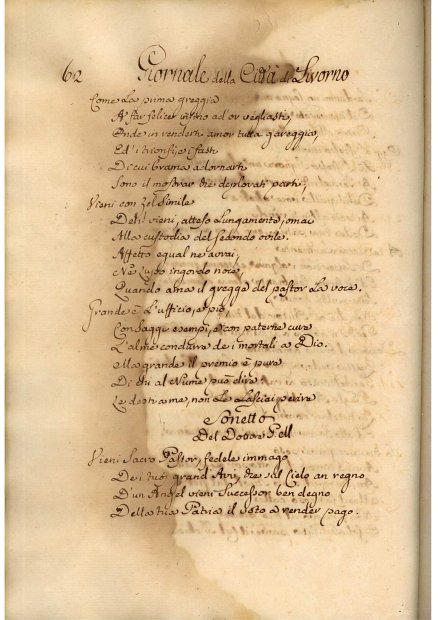 62 Giornale della Città di Livorno
Come la prima greggia
A far felice infino ad or vegliasti,
Onde in renderti amor tutta gareggia,
Ed i trionfi, i fasti
Di cui brama adornarti
Sono il mostrar
Vieni con zel simile
Deh! vieni, atteso lungamente, omai
Alla custodia del secondo ovile.
Affetto equal ne avrai,
Nè Lupo ingordo noce,
Quando ama il gregge del pastor la voce.
Grande è L'ufficio, e pio,
Con saggi esempi, e con paterne cure
L'alme condurre de i mortali a Dio.
Ma grande il premio è pure
Di chi al Nume può dire:
Le desti a me, non le lasciai perire
Sonetto
Del Dottor Pell
Vieni Sacro Pastor, fedele immago
De i tuoi grand'Avi, che sul Cielo an regno
D'un Angel vieni Successor ben degno
Della tua Patria il voto a render pago.